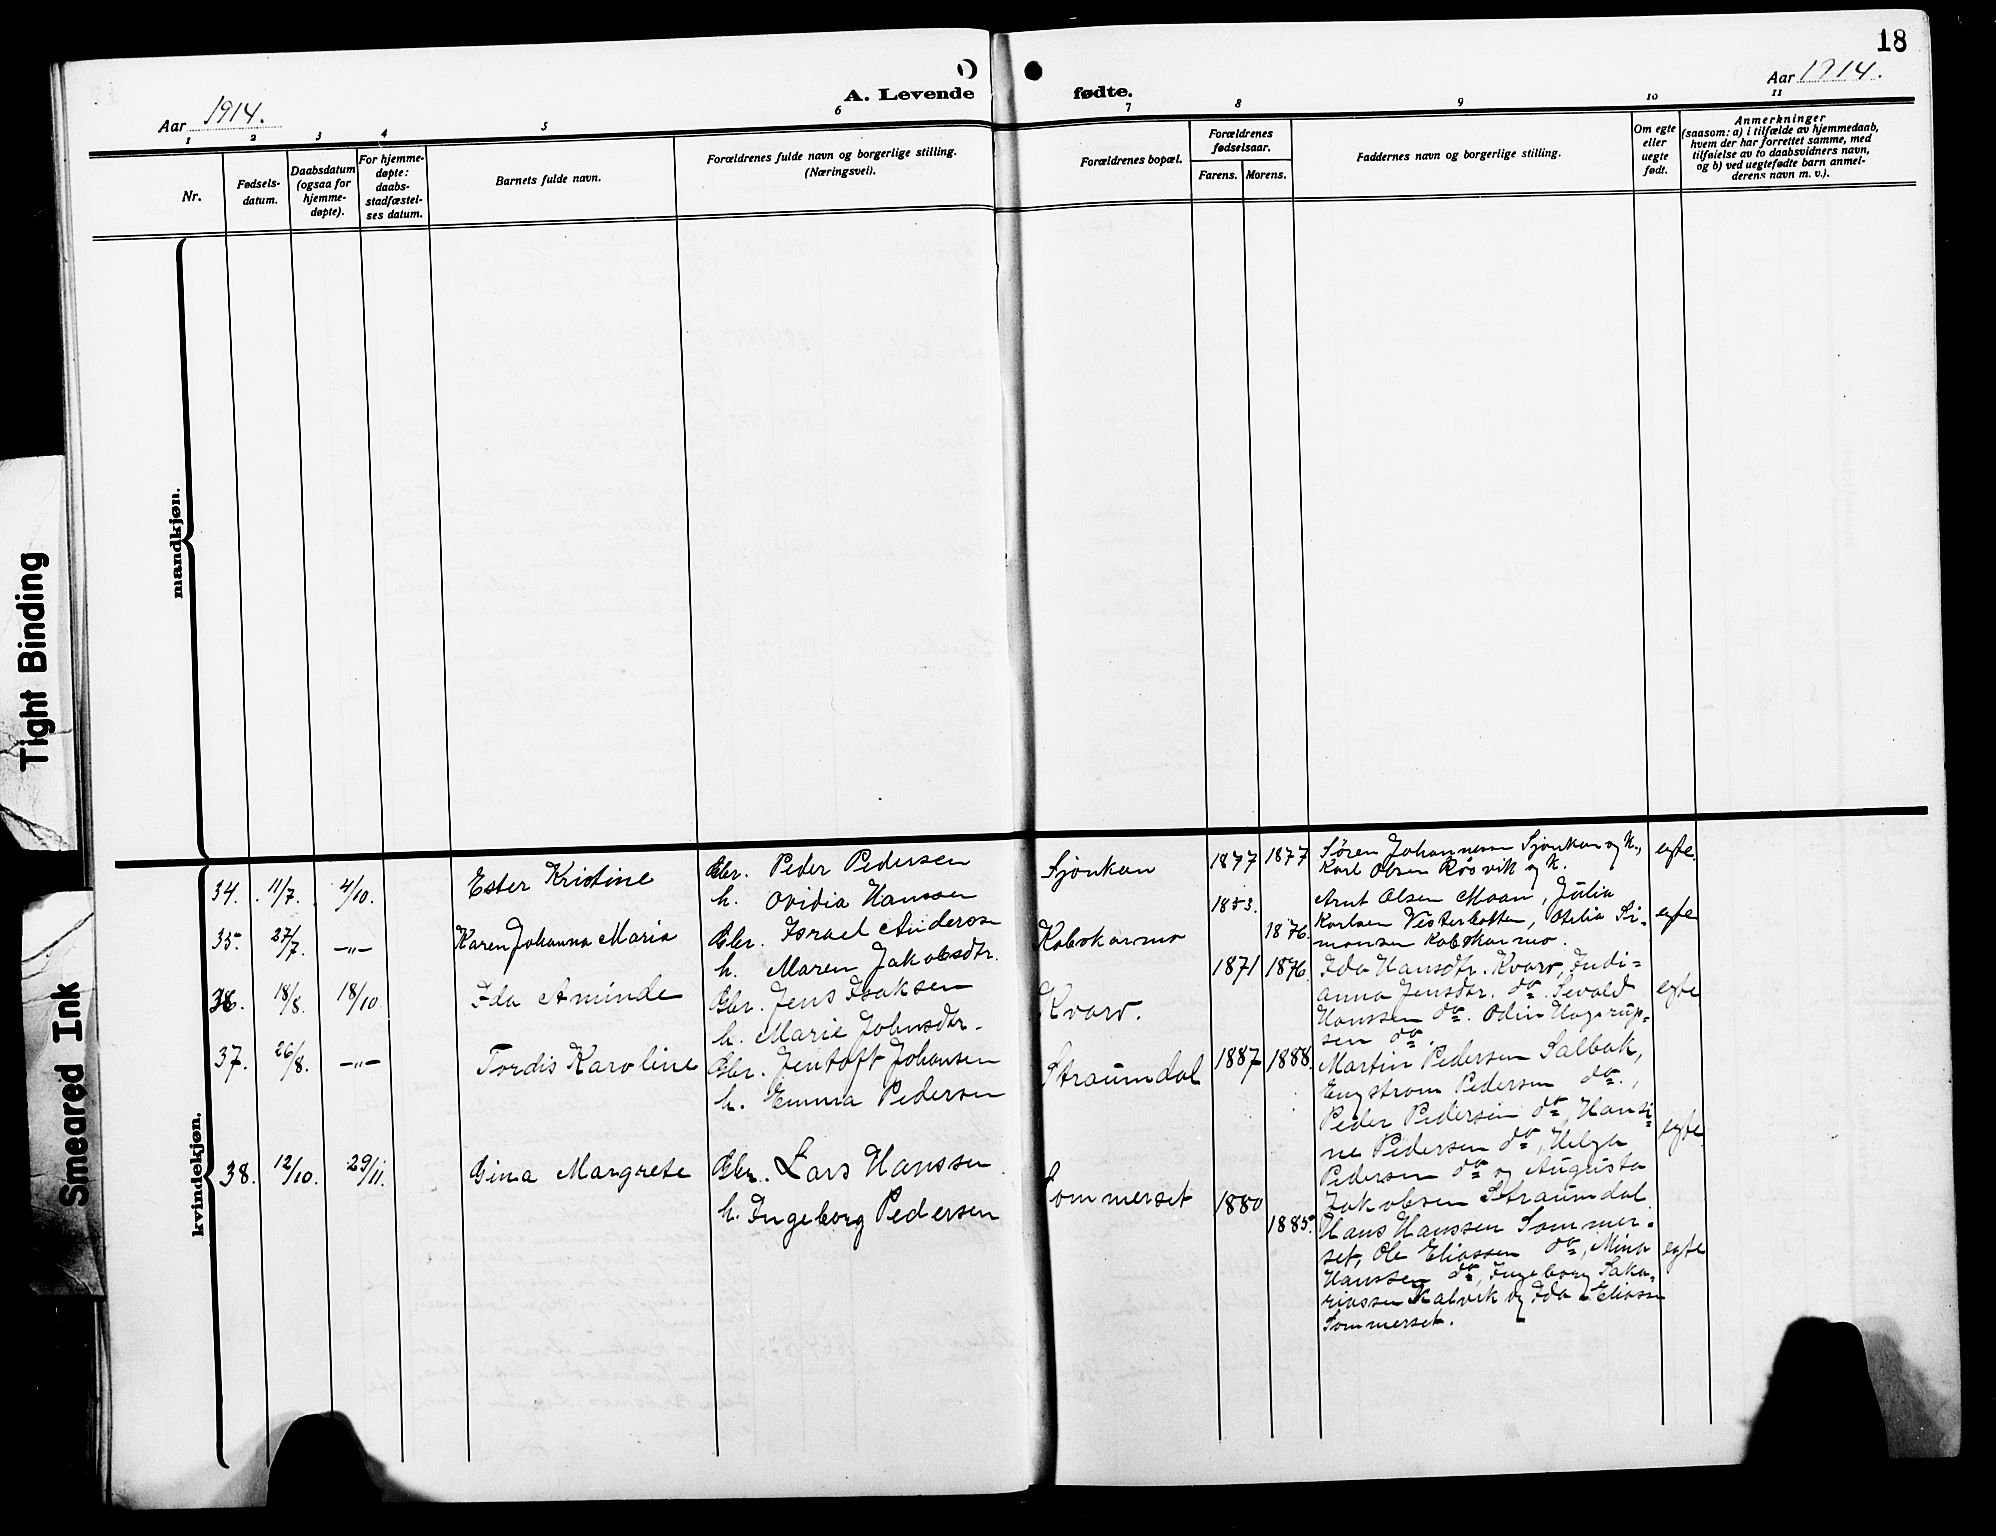 18
Aar 1914.
A. Levende
fødte.
Aar 1914.
1 2 3 4 5 6 7 8 9 10 11
Nr.
Fødsels-
datum.
Daabsdatum
(ogsaa for
hjemme-
døpte).
For hjemme-
døpte:
daabs-
stadfæstel-
ses datum.
Barnets fulde navn.
Forældrenes fulde navn og borgerlige stilling.
(Næringsvei).
Forældrenes bopæl.
Forældrenes
fødselsaar.
Farens. Morens.
Faddernes navn og borgerlige stilling.
Om egte
eller
uegte
født.
Anmerkninger
(saasom: a) i tilfælde av hjemmedaab,
hvem der har forrettet samme, med
tilføielse av to daabsvidners navn,
og b) ved uegtefødte barn anmel-
derens navn m. v.).
mandkjøn.
kvindekjøn.
34. 11/7. 4/10. Ester Kristine
Gbr. Peder Pedersen
h. Ovidia Hanssen
Sjönkan 1877 1877
Søren Johannesen Sjönkan og K.,
Karl Olsen Røsvik og K.
egte
35. 27/7. —"— Karen Johanna Maria
Gbr. Israel Anderss
h. Maren Jakobsdtr.
Kobskarmo 1853. 1876.
Arnt Olsen Moan, Julia
Karlsen Vesterbotten, Otelia Si-
monsen Kobskarmo.
egte
36. 18/8. 18/10. Ida Aminde
Gbr. Jens Isaksen
h. Marie Johnsdtr.
Kvarv. 1871 1876
Ida Hansdtr. Kvarv, Indi=
anna Jensdtr. do. Sevald
Hanssen do. Odin Hagerup-
sen do.
egte
37. 26/8. —"— Tordis Karoline
Gbr. Jentoft Johansen
h. Emma Pedersen
Straumdal 1887 1888.
Martin Pedersen Salbak,
Engstrom Pedersen do.,
Peder Pedersen do, Hansi=
ne Pedersen do, Helga
Pedersen do og Augusta
Jakobsen Straumdal
egte
38. 12/10. 29/11. Gina Margrete
Gbr. Lars Hanssen
h. Ingeborg Pedersen
Sommerset 1880 1885.
Hans Hanssen Sommer-
set, Ole Eliassen do, Mina
Hanssen do, Ingeborg Saka-
riassen Kalvik og Ida Eliass
Sommerset.
egte
Tight Binding
Smeared Ink